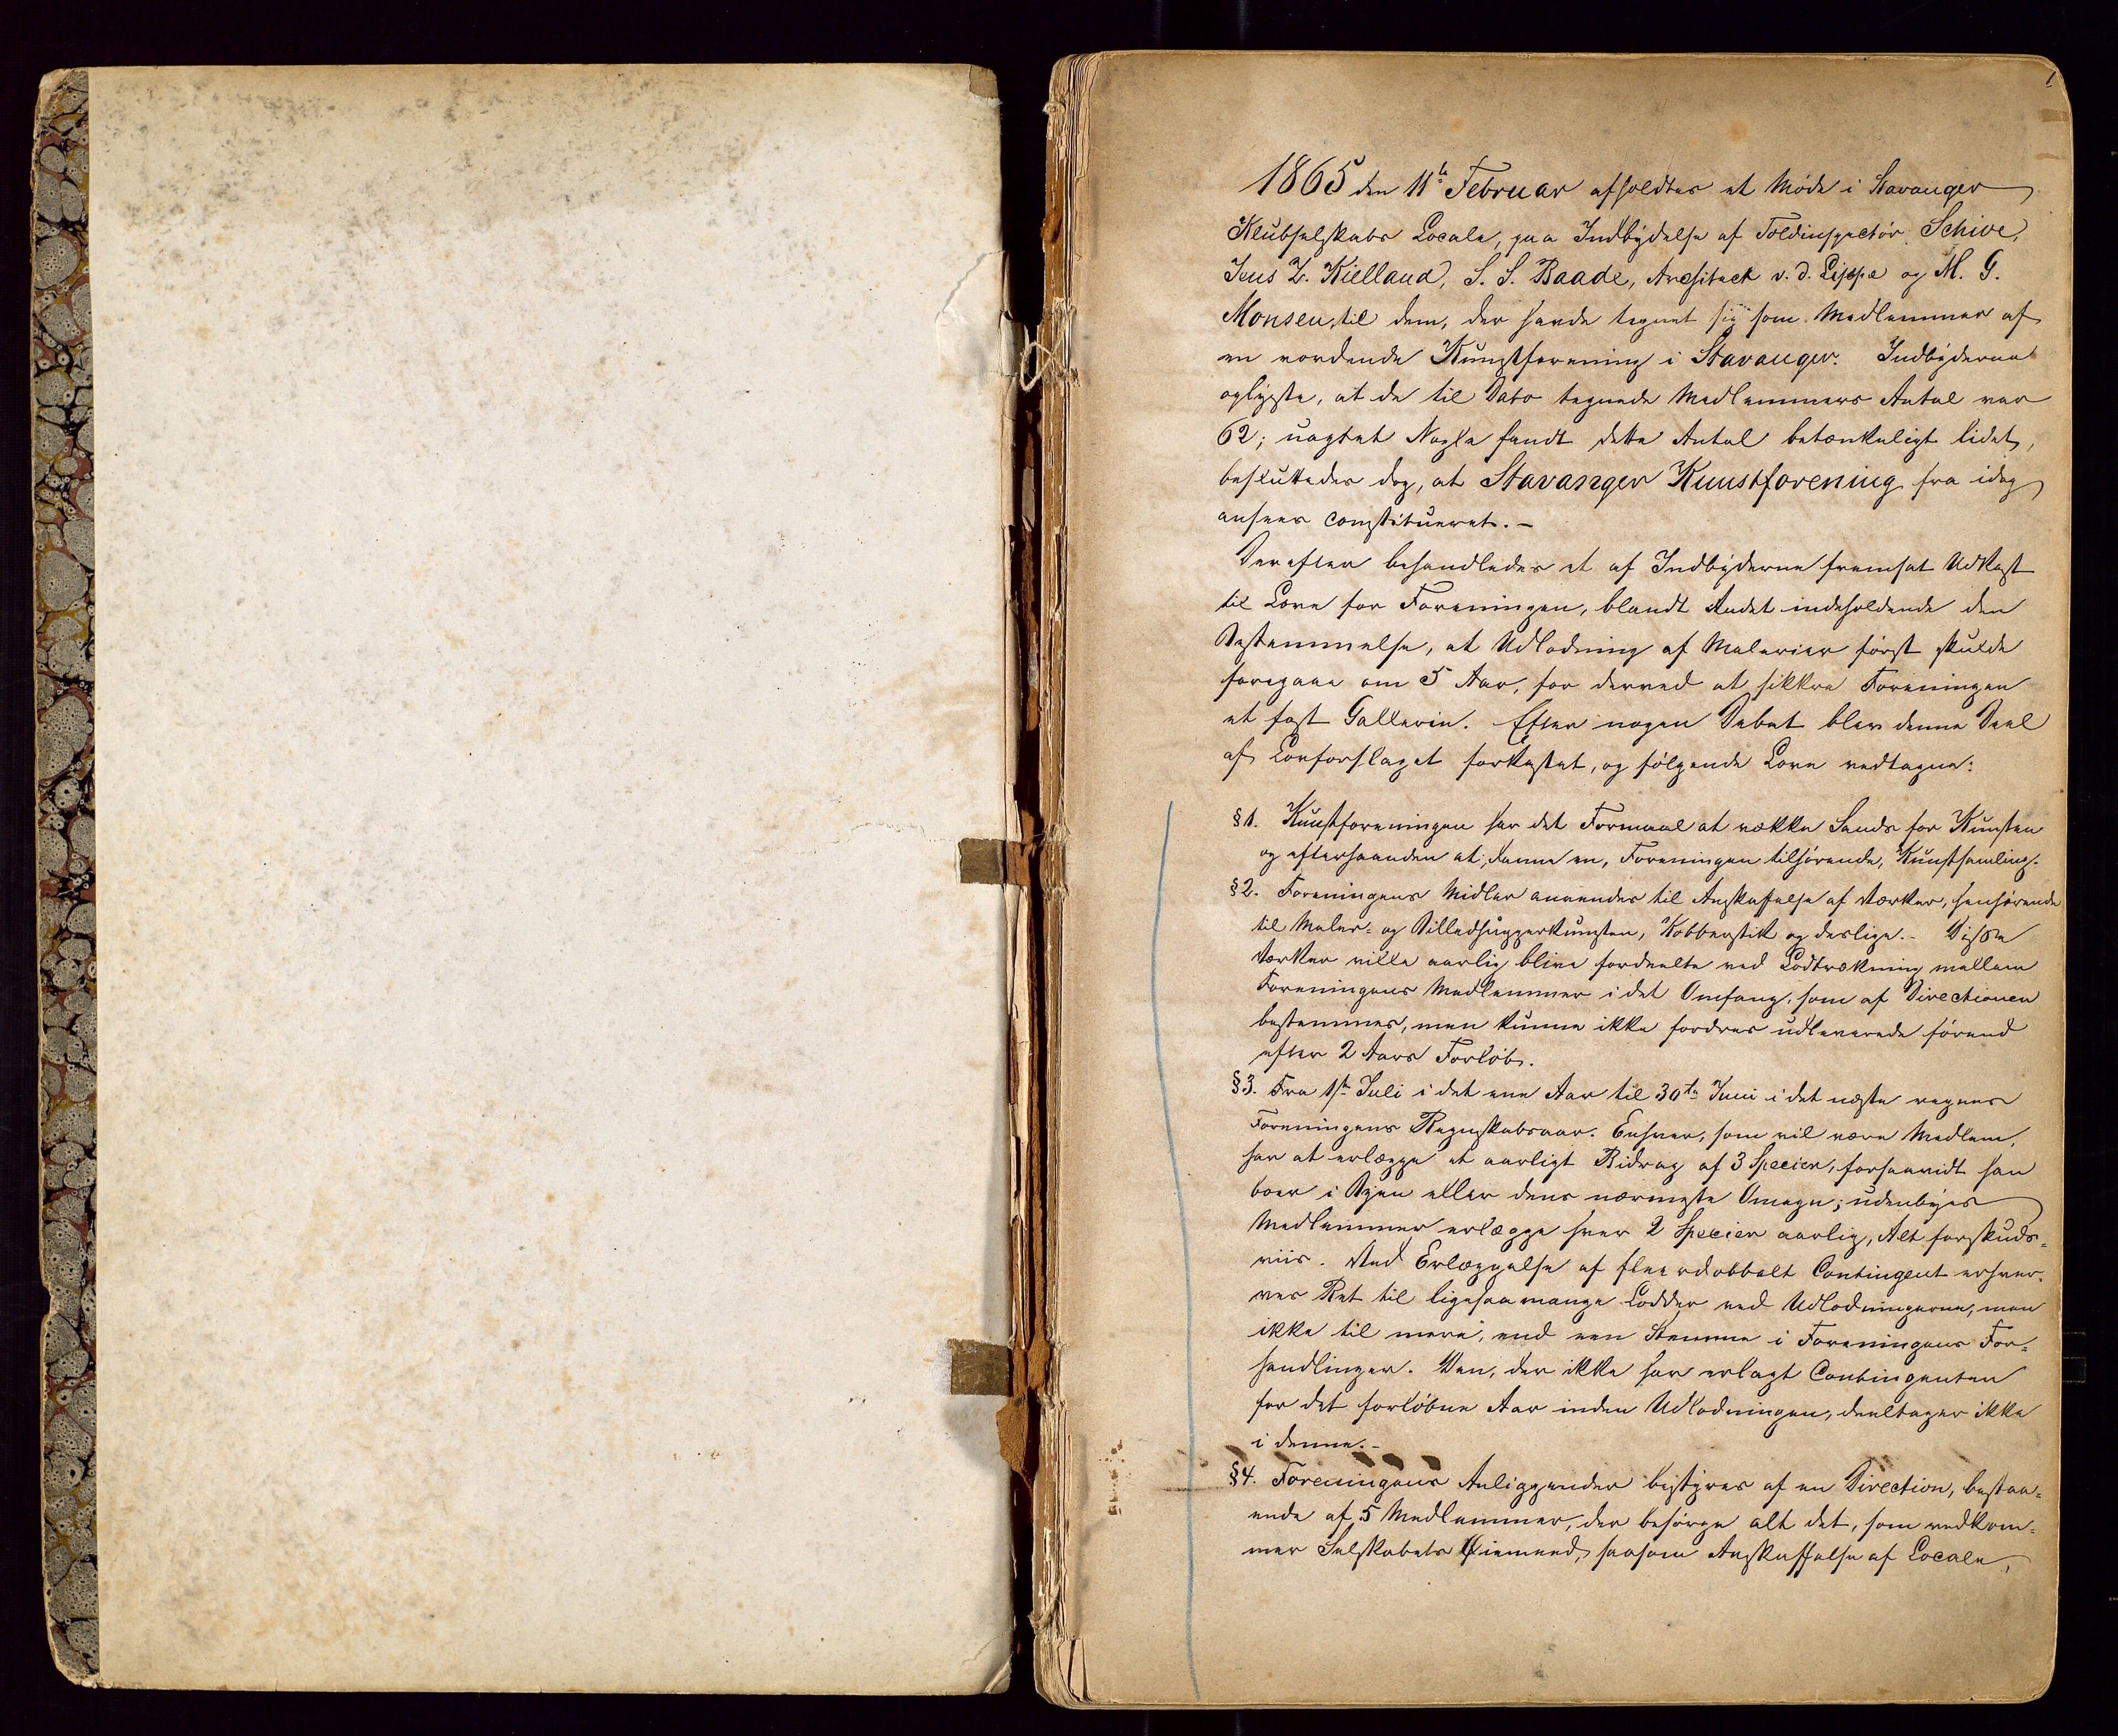 1
1865 den 11te Februar afholdtes et Møde i Stavanger
Klubselskabs Locale, paa Indbydelse af Toldinspectør Schive,
Jens Z. Kielland, S. S. Baade, Architect v. d. Lippe og M. G.
Monsen, til dem, der havde tegnet sig som Medlemmer af
en vordende Kunstforening i Stavanger. Indbyderne
oplyste, at de til Dato tegnede Medlemmers Antal var
62; uagtet Nogle fandt dette Antal betænkeligt lidet,
besluttedes dog, at Stavanger Kunstforening fra idag
ansees constitueret. –
Derefter behandledes et af Indbyderne fremsat Udkast
til Love for Foreningen, blandt Andet indeholdende den
Bestemmelse, at Udlodning af Malerier først skulde
foregaae om 5 Aar, for derved at sikkre Foreningen
et fast Gallerie. Efter nogen Debat blev denne Deel
af Lovforslaget forkastet, og følgende Love vedtagne:
§1. Kunstforeningen har det Formaal at vække Sands for Kunsten
og efterhaanden at danne en, Foreningen tilhørende, Kunstsamling.
§2. Foreningens Midler anvendes til Anskaffelse af Værker, henhørende
til Maler- og Billedhuggerkunsten, Kobberstik og deslige. – Disse
Værker ville aarlig blive fordeelte ved Lodtrækning mellem
Foreningens Medlemmer i det Omfang, som af Directionen
bestemmes, men kunne ikke fordres udleverede førend
efter 2 Aars Forløb.
§3. Fra 1ste Juli i det ene Aar til 30te Juni i det næste regnes
Foreningens Regnskabsaar. Enhver, som vil være Medlem,
har at erlægge et aarligt Bidrag af 3 Specier, forsaavidt han
boer i Byen eller dens nærmeste Omegn; udenbyes
Medlemmer erlægge hver 2 Specier aarlig, Alt forskuds-
viis. Ved Erlæggelse af fleerdobbelt Contingent erhver-
ves Ret til ligesaamange Lodder ved Udlodningerne, men
ikke til mere, end een Stemme i Foreningens For-
handlinger. Den, der ikke har erlagt Contingenten
for det forløbne Aar inden Udlodningen, deeltager ikke
i denne. –
§4. Foreningens Anliggender bestyres af en Direction, bestaa-
ende af 5 Medlemmer, der besørge alt det, som vedkom-
mer Selskabets Øiemeed, saasom Anskaffelse af Locale,